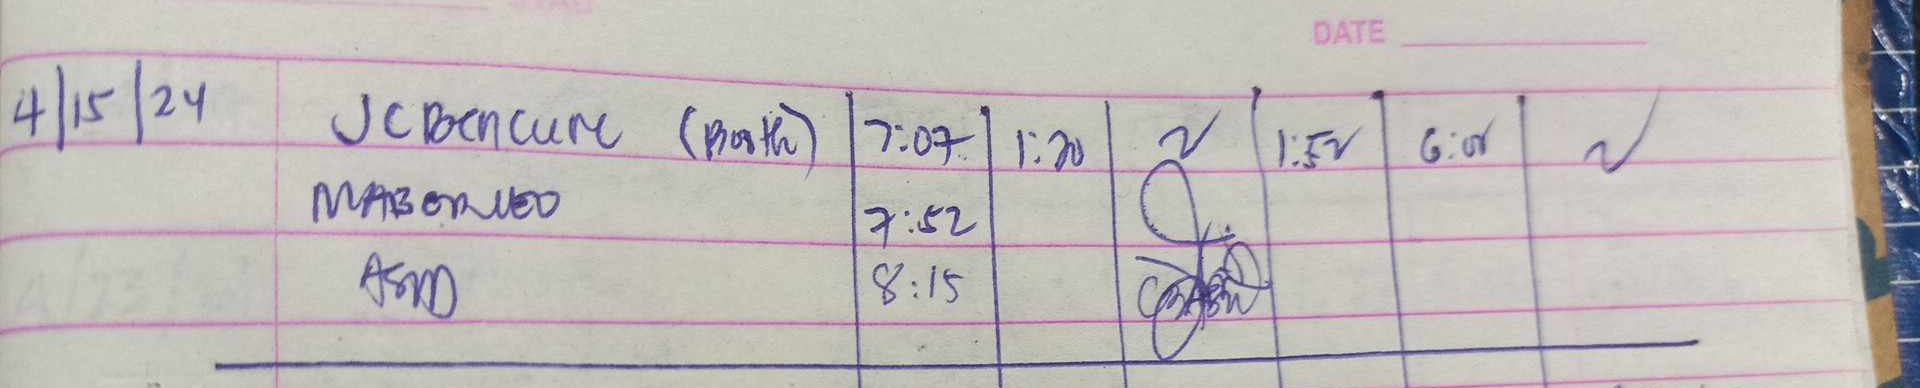 DATE
4/15/24 JC Bencure (Both) 7:07 1:20 1:52 6:01
7:52
ASD 8:15